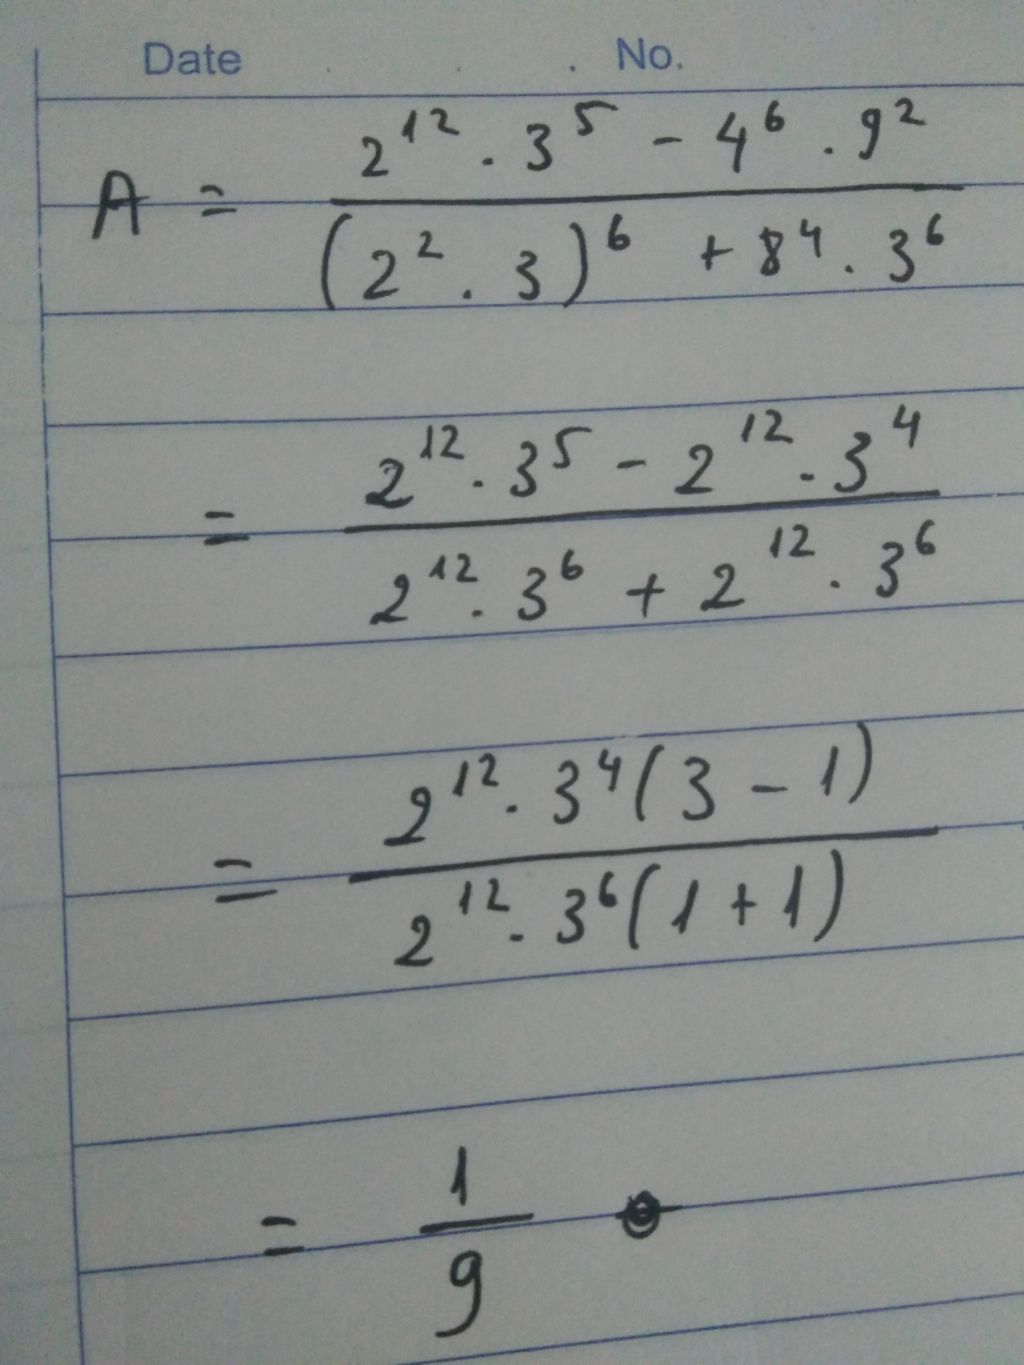 Date No.
A = \frac{2^{12} . 3^5 - 4^6 . 9^2}{(2^2 . 3)^6 + 8^4 . 3^6}
= \frac{2^{12} . 3^5 - 2^{12} . 3^4}{2^{12} . 3^6 + 2^{12} . 3^6}
= \frac{2^{12} . 3^4 (3 - 1)}{2^{12} . 3^6 (1 + 1)}
= \frac{1}{9}